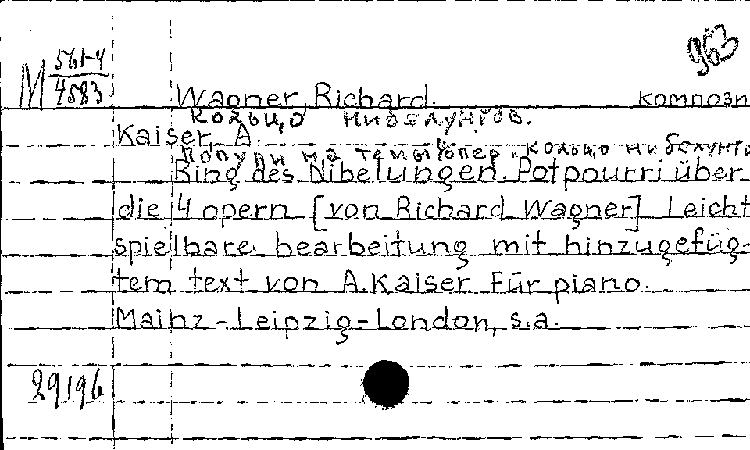 963
М 561-4
4583
Wagner, Richard. композ
Кольцо нибелунгов.
Kaiser, A.
Попури на темы опер. кольцо нибелунго
Ring des Nibelungen. Potpourri über
die 4 opern [von Richard Wagner] Leicht
spielbare bearbeitung mit hinzugefüg-
tem text von A. Kaiser Für piano.
Mainz - Leipzig - London, s.a.
29196